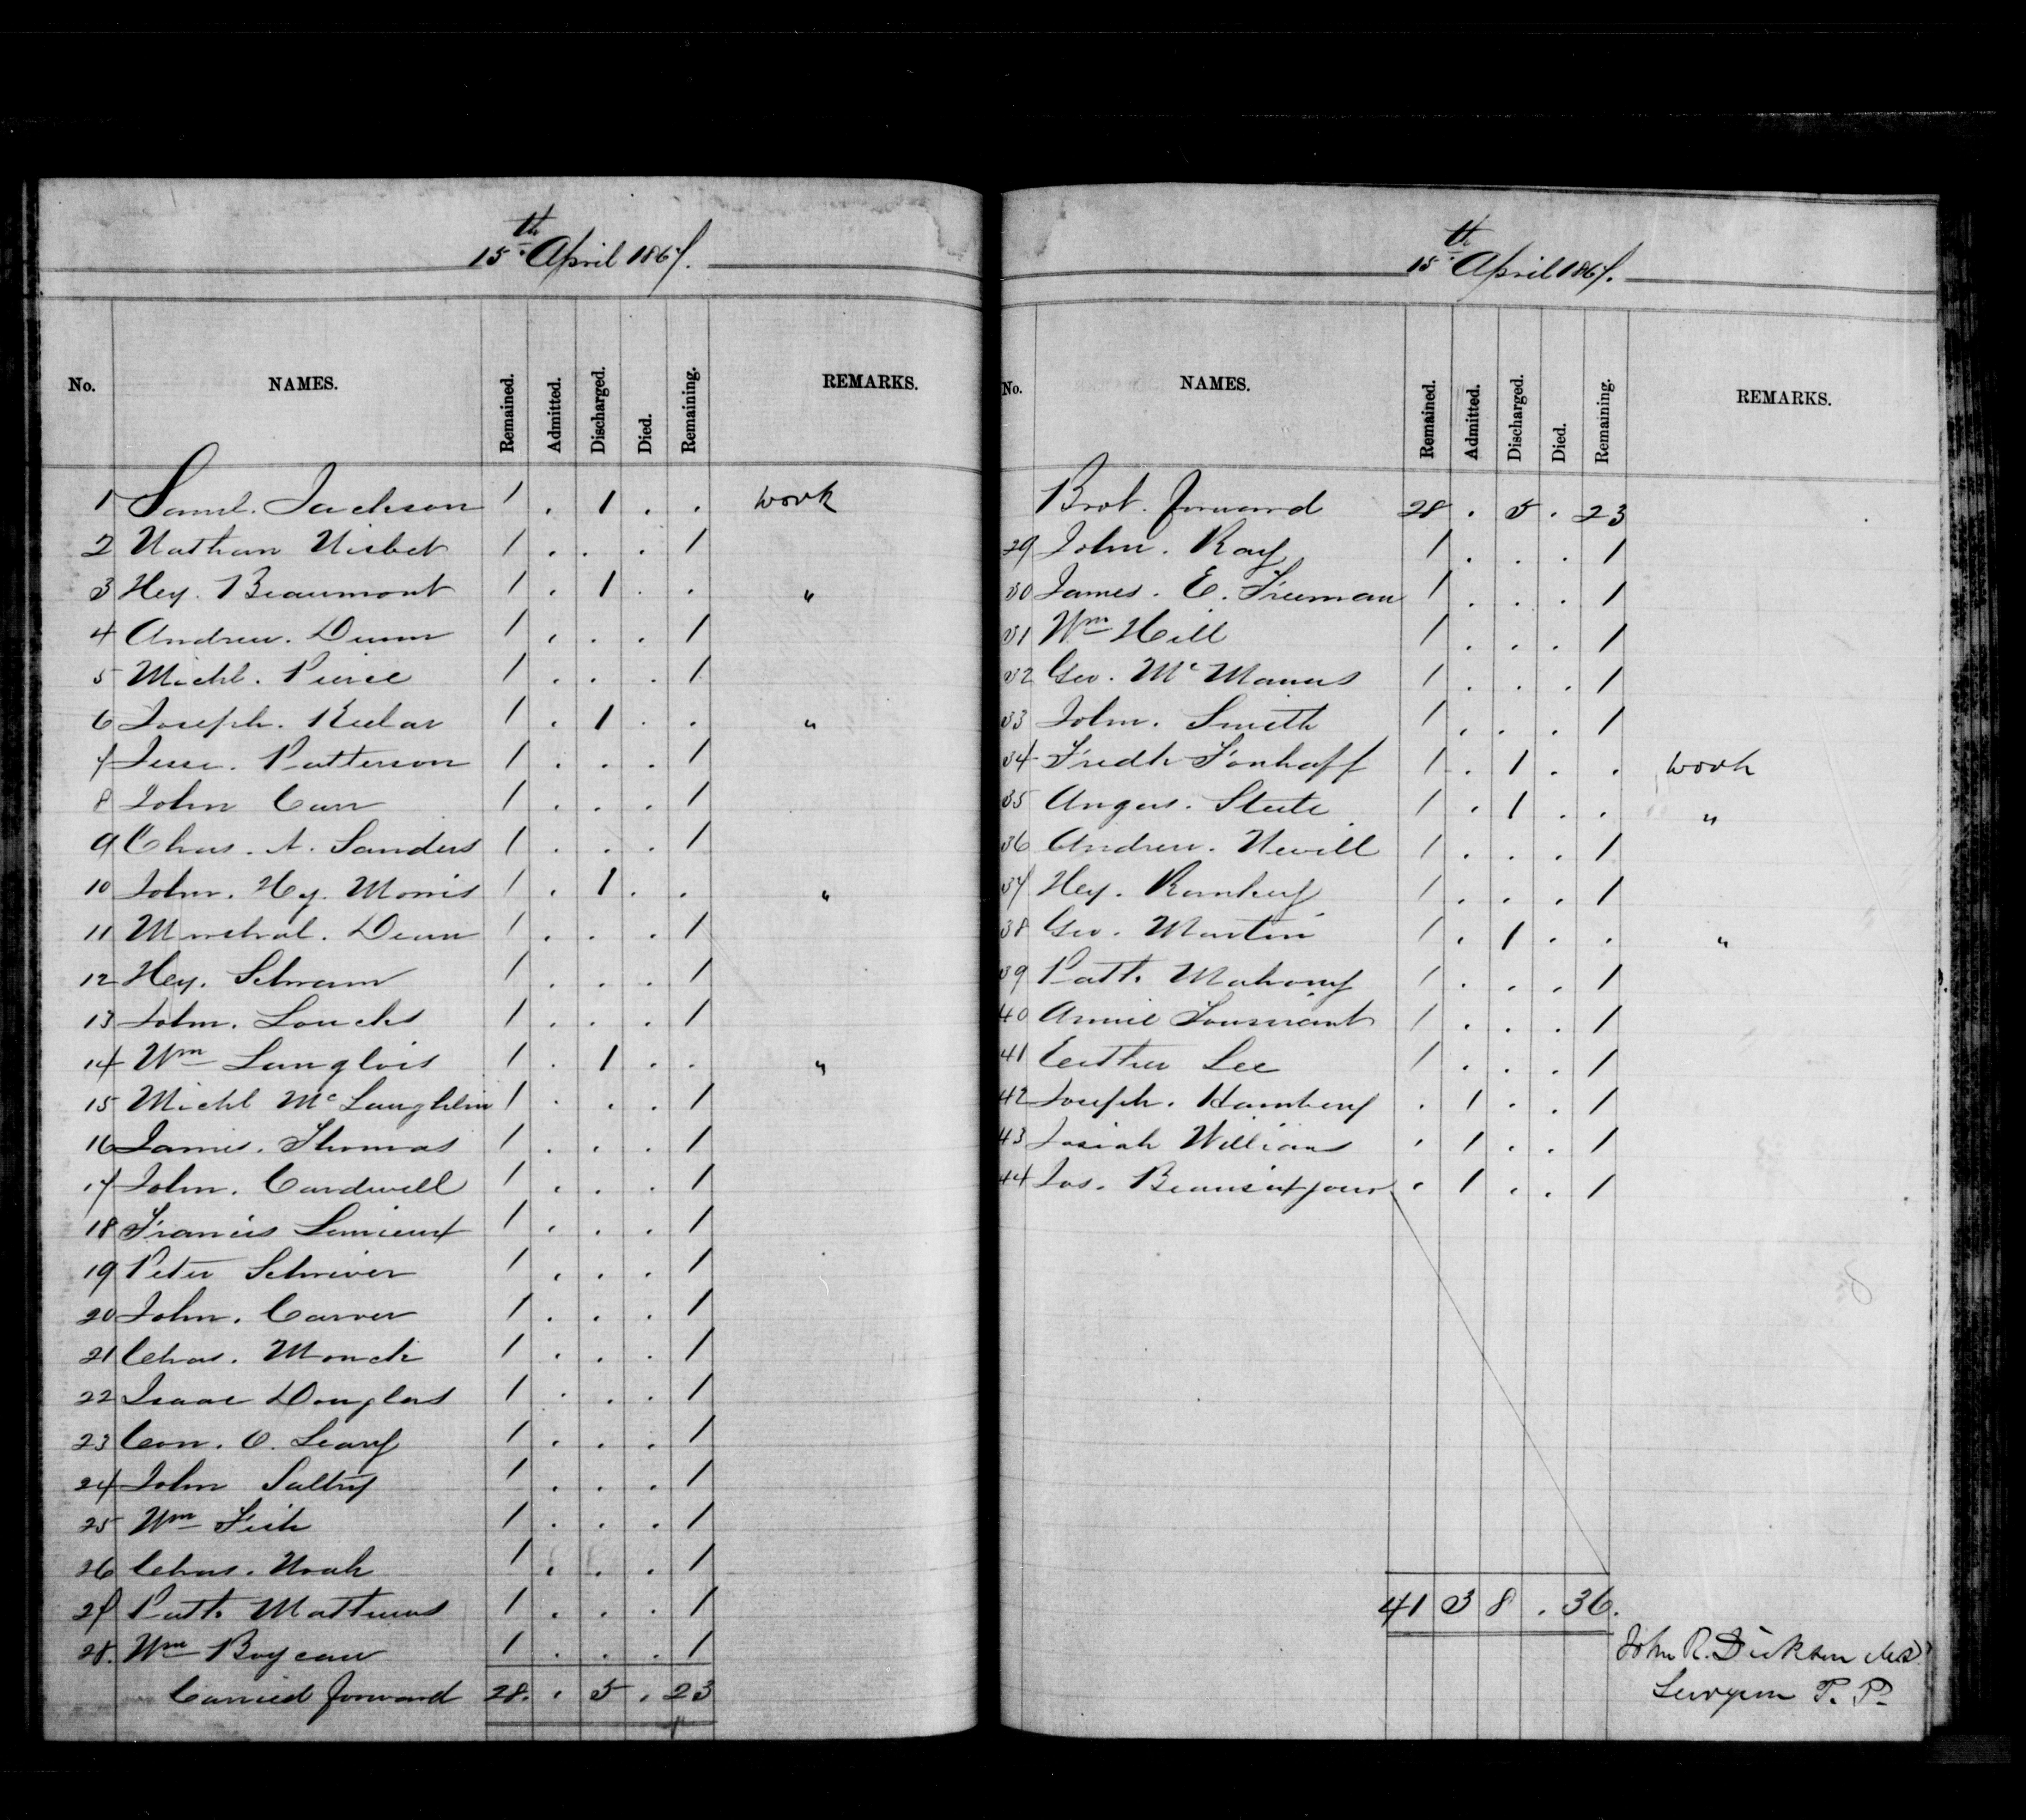 15th April 1867.
No. NAMES. Remained. Admitted. Discharged. Died. Remaining. REMARKS.
1 Saml. Jackson 1 . 1 . . work
2 Nathan Nisbet 1 . . . 1
3 Hey. Beaumont 1 . 1 . . "
4 Andrew. Dunn 1 . . . 1
5 Michl. Pierce 1 . . . 1
6 Joseph. 1 . 1 . . "
7 Jesse. Patterson 1 . . . 1
8 John Carr 1 . . . 1
9 Chas. A. Sanders 1 . . . 1
10 John. Hy. Morris 1 . 1 . . "
11 Marshal. Dean 1 . . . 1
12 Hey. Schram 1 . . . 1
13 John. Loucks 1 . . . 1
14 Wm Langlois 1 . 1 . . "
15 Michl McLaughlin 1 . . . 1
16 James. Thomas 1 . . . 1
17 John. Cardwell 1 . . . 1
18 Francis Lemieux 1 . . . 1
19 Peter Schriver 1 . . . 1
20 John. Carver 1 . . . 1
21 Chas. Monck 1 . . . 1
22 Isaac Douglas 1 . . . 1
23 Con. O. Leary 1 . . . 1
24 John Saltry 1 . . . 1
25 Wm Fish 1 . . . 1
26 Chas. Noah 1 . . . 1
27 Patk. Mathews 1 . . . 1
28. Wm Boyeau 1 . . . 1
Carried forward 28. . 5 . 23
15th April 1867.
No. NAMES. Remained. Admitted. Discharged. Died. Remaining. REMARKS.
Brot. forward 28 . 5 . 23
29 John. Ray 1 . . . 1
30 James. E. Freeman 1 . . . 1
31 Wm Hill 1 . . . 1
32 Geo. McManus 1 . . . 1
33 John. Smith 1 . . . 1
34 Fredk Fonhaff 1 . 1 . . work
35 Angus. Steele 1 . 1 . . "
36 Andrew. Nevill 1 . . . 1
37 Hey. Ramkey 1 . . . 1
38 Geo. Martin 1 . 1 . . "
39 Patk. Mahony 1 . . . 1
40 Annie Tousseant 1 . . . 1
41 Esther Lee 1 . . . 1
42 Joseph. Hamberry . 1 . . 1
43 Josiah Williams . 1 . . 1
44 Jos. . 1 . . 1
41 3 8 . 36.
John R. Dickson M.D.
Surgeon P. P.